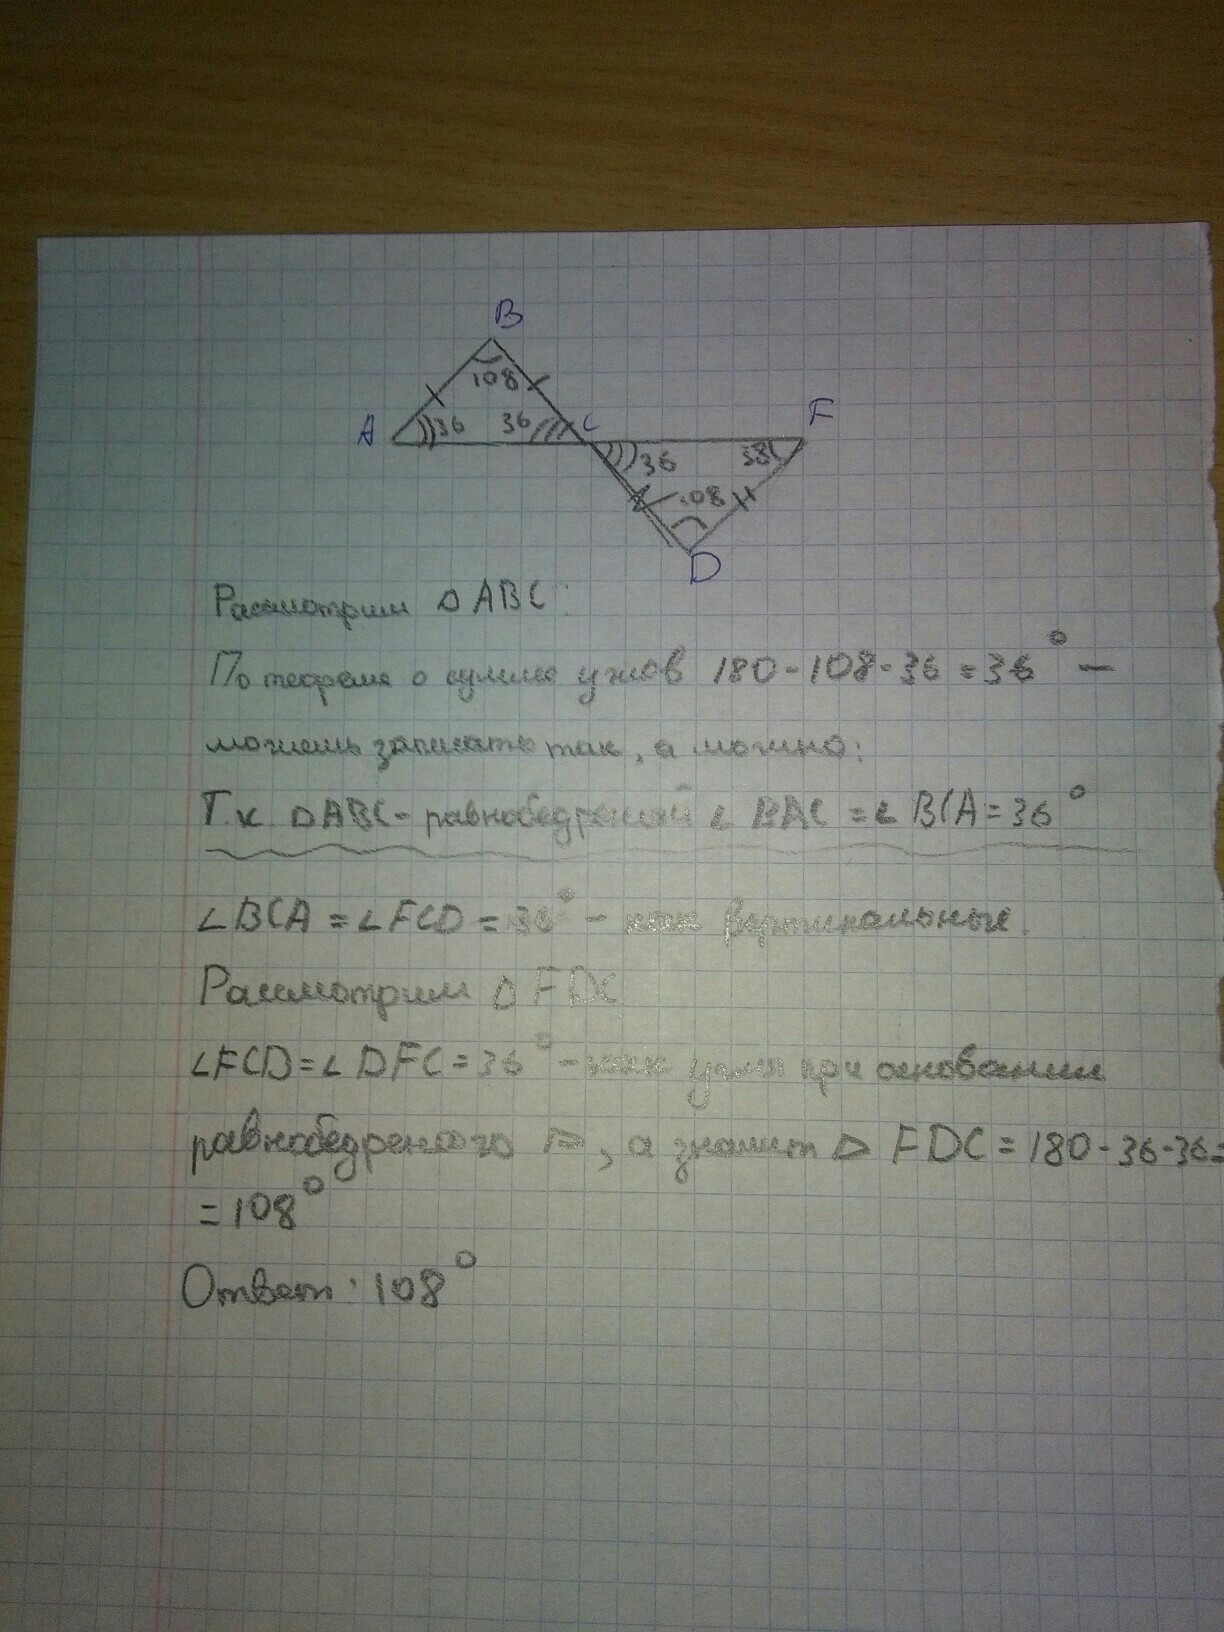 B
108
A 36 36 C F
36 38
108
D
Рассмотрим △ ABC:
По теореме о сумме углов 180-108-36=36° -
можешь записать так, а можно:
Т.к. △ABC- равнобедреный ∠ BAC = ∠ BCA=36°
∠BCA = ∠FCD = 36° - как вертикальные.
Рассмотрим △ FDC
∠FCD=∠DFC=36° - как углы при основании
равнобедреного △, а значит △ FDC = 180-36-36=
=108°
Ответ: 108°